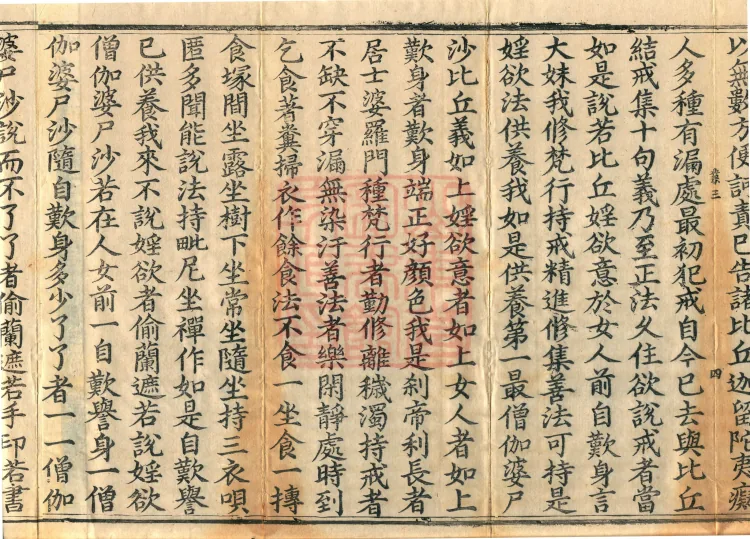 以無數方便訶責已告諸比丘迦留陀夷癡
人多種有漏處最初犯戒自今已去與比丘
結戒集十句義乃至正法久住欲說戒者當
如是說若比丘婬欲意於女人前自歎身言
大妹我修梵行持戒精進修集善法可持是
婬欲法供養我如是供養第一最僧伽婆尸
沙比丘義如上婬欲意者如上女人者如上
歎身者歎身端正好顏色我是剎帝利長者
居士婆羅門種梵行者勤修離穢濁持戒者
不缺不穿漏無染汙善法者樂閑靜處時到
乞食著糞掃衣作餘食法不食一坐食一摶
食塚間坐露坐樹下坐常坐隨坐持三衣唄
匿多聞能說法持毗尼坐禪作如是自歎譽
已供養我來不說婬欲者偷蘭遮若說婬欲
僧伽婆尸沙若在人女前一自歎譽身一僧
伽婆尸沙隨自歎身多少了了者一一僧伽
婆尸沙說而不了了者偷蘭遮若手印若書
三
四